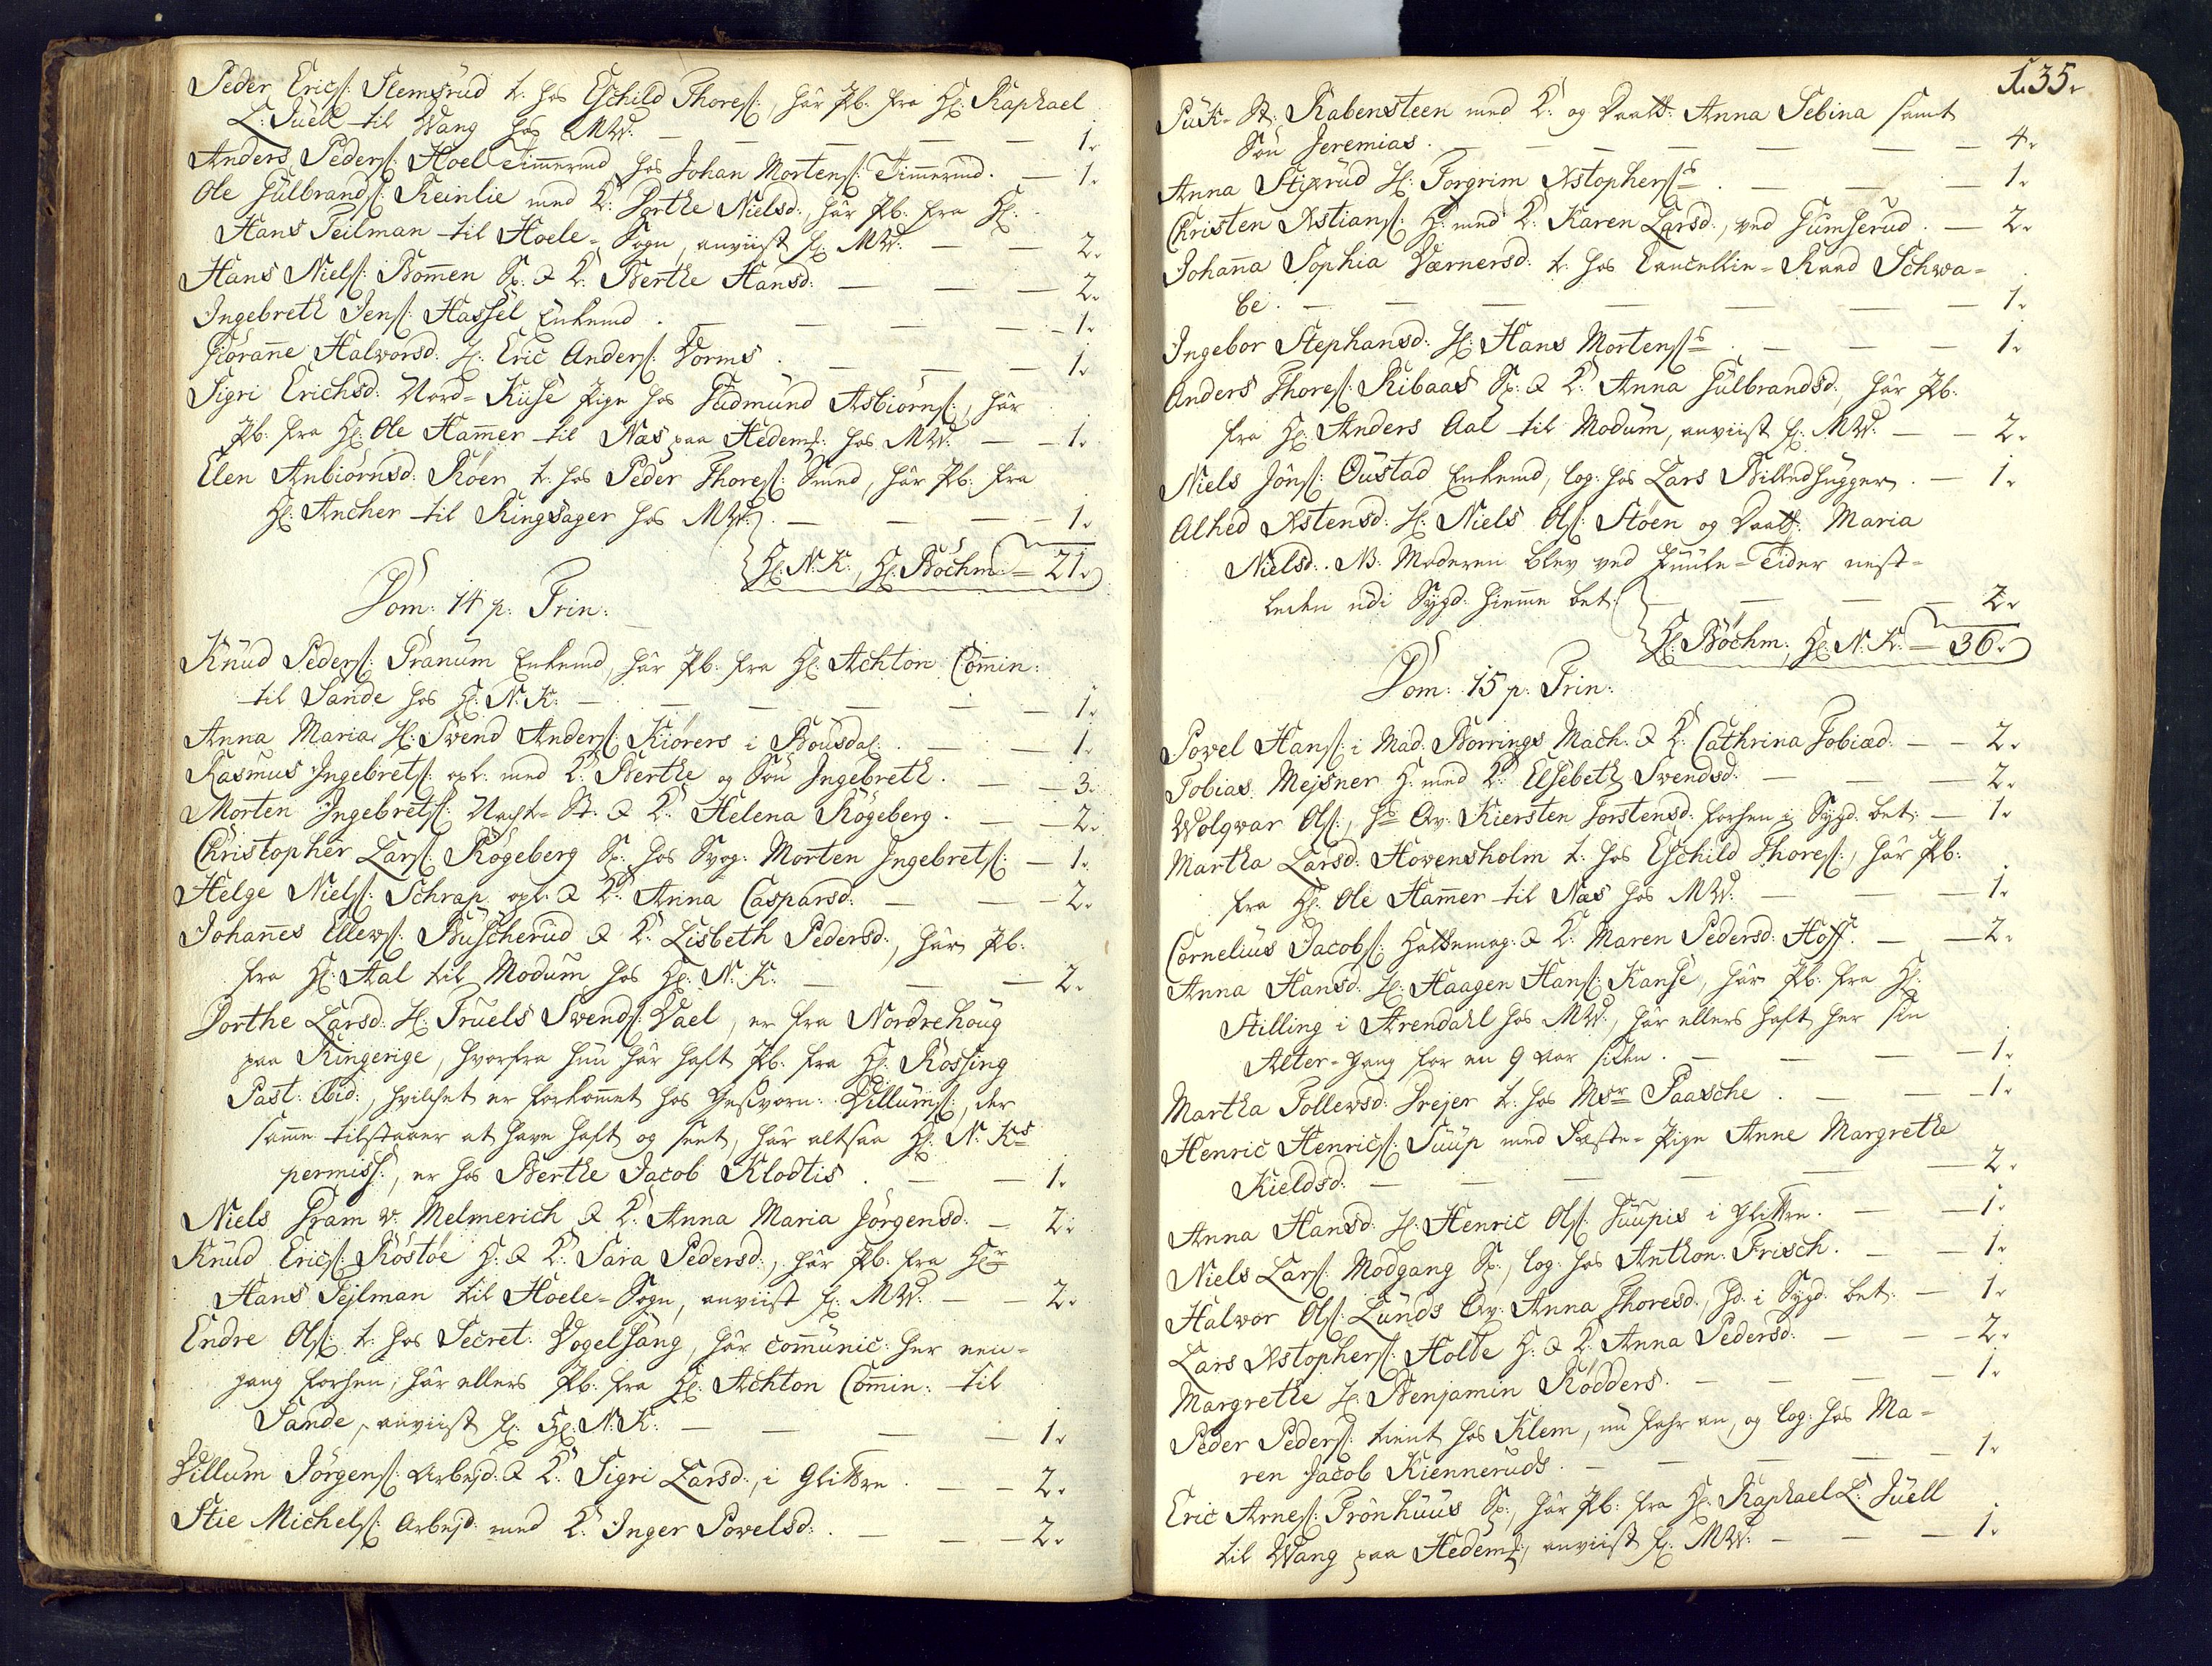 Peder Erics: Slemsrud t. hos Eschild Thores:, har Pb. fra Hr: Raphael
L: Juell til Wang hos MW: — 1.
Anders Peders: Hoel Timmermd hos Johan Mortens: Timmermd. — 1.
Ole Gulbrands: Reinlie med K: Dorthe Nielsd:, har Pb. fra Hr:
Hans Teilman til Hoele-Sogn, anviist f: MW: — 2.
Hans Niels: Bommen Sp: & K: Berthe Hansd: — 2.
Ingebreth Jens: Hassel Enkemd. — 1.
Giöranne Halvorsd: H: Eric Anders: Vorms. — 1.
Sigri Erichsd: Nord-Kuse Pige hos Gudmund Asbiörns:, har
Pb. fra Hr: Ole Hammer til Næs paa Hedem: hos MW: — 1.
Elen Anbiörnsd: Röen t. hos Peder Thores: Smed, har Pb. fra
Hr: Ancher til Ringsager hos MW: — 1.
Hr: N.K:, Hr: Böchm: = 21.
Dom: 14 p: Trin:
Knud Peders: Pranum Enkemd, har Pb. fra Hr: Achton Commin:
til Sande hos Hr: N.K: — 1.
Anna Maria H: Svend Anders: Kiörers i Bousdal: — 1.
Rasmus Ingebrets: opl. med K: Berthe og Sön Ingebreth. — 3.
Morten Ingebrets: Nacht-St: & K: Helena Rögeberg. — 2.
Christopher Lars: Rögeberg Sp: hos Svog: Morten Ingebrets: — 1.
Helge Niels: Schrap opl. & K: Anna Caspersd: — 2.
Johannes Ellews: Buscherud & K: Lisbeth Pedersd:, har Pb:
fra Hr: Aal til Modum hos Hr: N.K: — 2.
Dorthe Larsd: H: Truels Svends: Dael, er fra Nordrehoug
paa Ringerige, hvorfra hun har haft Pb. fra Hr: Rossing
Past: ibid:, hvilchet er forkommet hos Giesvorn: Villums:, der
samme tilstaaer at have haft og seet, har altsaa Hr: N.Ks
permiss:, er hos Berthe Jacob Klodtis. — 1.
Niels Pram v. Melmerich & K: Anna Maria Jörgensd: — 2.
Knud Erics: Röstöe H: & K: Sara Pedersd:, har Pb. fra Hr
Hans Tejlman til Hoele-Sogn, anviist f: MW: — 2.
Endre Ols: t. hos Secret: Vogelsang, har communic: her een-
gang forhen, har ellers Pb. fra Hr: Achton Commin: til
Sande, anviist f: Hr: N.K: — 1.
Villum Jörgens: Arbejd: & K: Sigri Larsd:, i Glittre. — 2.
Stie Michels: Arbejd: med K: Inger Povelsd: — 2.
135.
Rabensteen med K: og Daatt: Anna Sebina samt
Sön Jeremias. — 4.
Anna Stixrud H: Torgrim Xstophers: — 1.
Christen Xstians: H: med K: Karen Larsd:, ved Gumserud. — 2.
Johanna Sophia Værnersd: t. hos Cancellie-Raad Schwa-
be. — 1.
Ingebor Stephansd: H: Hans Mortens: — 1.
Anders Thores: Ribaas Sp: & K: Anna Gulbrandsd:, har Pb.
fra Hr: Anders Aal til Modum, anviist f: MW: — 2.
Niels Jöns: Oustad Enkemd, log: hos Lars Billedhugger. — 1.
Alhed Xstensd: H: Niels Ols: Stöen og Daatt: Maria
Nielsd: NB. Moderen blev ved Juule-Tider nest-
leden udi Sygd: hiemme bet: — 2.
Hr: Böchm:, Hr: N.K: — 36.
Dom: 15 p: Trin:
Povel Hans: i Mad. Borrings Mach: & K: Cathrina Tobiæd: — 2.
Tobias Mejsner H: med K: Elsebeth Svendsd: — 2.
Wolqvar Ols:, hs Qv: Kiersten Torstensd: forhen i Sygd: bet: — 1.
Martha Larsd: Hovensholm t. hos Eschild Thores:, har Pb:
fra Hr: Ole Hammer til Næs hos MW: — 1.
Cornelius Jacobs: Hattemag: & K: Maren Pedersd: Hoff. — 2.
Anna Hansd: H: Haagen Hans: Kanse, har Pb. fra Hr:
Stilling i Arendahl hos MW:, har ellers haft her sin
Alter-gang for en 9 Aar siden. — 1.
Martha Tollewsd: Drejer t. hos Msr Paasche. — 1.
Henric Henrics: Suup med Fæste-Pige Anne Margrethe
Kieldsd: — 2.
Anna Hansd: H: Henric Ols: Suupis i Glittre. — 1.
Niels Lars: Modgang Sp:, log: hos Anthon: Frisch. — 1.
Halvor Ols: Lunds Qv: Anna Thoresd:, hd: i Sygd: bet: — 1.
Lars Xstophers: Holte H: & K: Anna Pedersd: — 2.
Margrethe H: Benjamin Rödders. — 1.
Peder Peders: tient hos Klem, nu og log: hos Ma-
ren Jacob Kienneruds. — 1.
Eric Arnes: Trönhuus Sp:, har Pb: fra Hr: Raphael L: Juell
til Wang paa Hedem:, anviist f: MW: — 1.